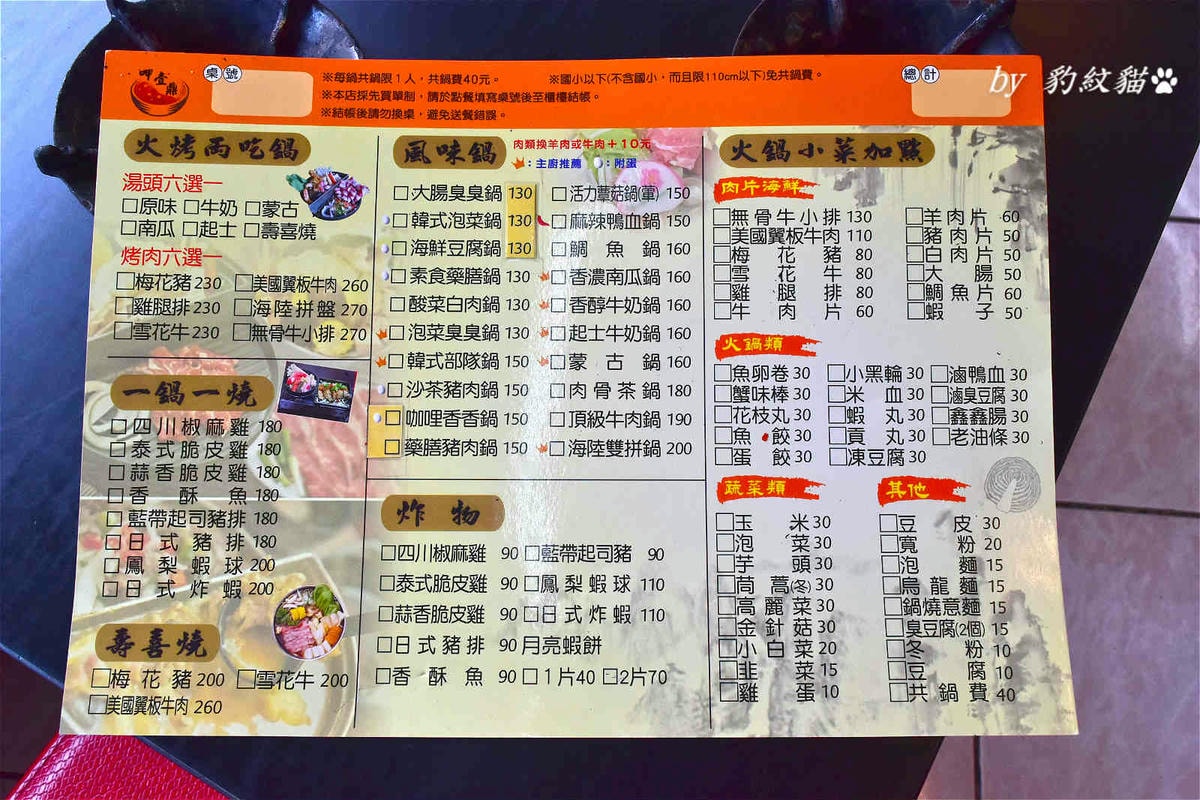 呷壹鼎
桌號
※每鍋共鍋限1人，共鍋費40元。 ※國小以下(不含國小，而且限110cm以下)免共鍋費。
※本店採先買單制，請於點餐填寫桌號後至櫃檯結帳。
※結帳後請勿換桌，避免送餐錯誤。
總計
by 豹紋貓
火烤兩吃鍋
湯頭六選一
□原味 □牛奶 □蒙古
□南瓜 □起士 □壽喜燒
烤肉六選一
□梅花豬 230 □美國翼板牛肉 260
□雞腿排 230 □海陸拼盤 270
□雪花牛 230 □無骨牛小排 270
一鍋一燒
□四川椒麻雞 180
□泰式脆皮雞 180
□蒜香脆皮雞 180
□香酥魚 180
□藍帶起司豬排 180
□日式豬排 180
□鳳梨蝦球 200
□日式炸蝦 200
壽喜燒
□梅花豬 200 □雪花牛 200
□美國翼板牛肉 260
風味鍋
肉類換羊肉或牛肉＋10元
：主廚推薦 ：附蛋
□大腸臭臭鍋 130 □活力蕈菇鍋(葷) 150
□韓式泡菜鍋 130 □麻辣鴨血鍋 150
□海鮮豆腐鍋 130 □鯛魚鍋 160
□素食藥膳鍋 130 □香濃南瓜鍋 160
□酸菜白肉鍋 130 □香醇牛奶鍋 160
□泡菜臭臭鍋 130 □起士牛奶鍋 160
□韓式部隊鍋 150 □蒙古鍋 160
□沙茶豬肉鍋 150 □肉骨茶鍋 180
□咖哩香香鍋 150 □頂級牛肉鍋 190
□藥膳豬肉鍋 150 □海陸雙拼鍋 200
炸物
□四川椒麻雞 90 □藍帶起司豬 90
□泰式脆皮雞 90 □鳳梨蝦球 110
□蒜香脆皮雞 90 □日式炸蝦 110
□日式豬排 90 月亮蝦餅
□香酥魚 90 □1片40 □2片70
火鍋小菜加點
肉片海鮮
□無骨牛小排 130 □羊肉片 60
□美國翼板牛肉 110 □豬肉片 50
□梅花豬 80 □白肉片 50
□雪花牛 80 □大腸 50
□雞腿排 80 □鯛魚片 60
□牛肉片 60 □蝦子 50
火鍋類
□魚卵卷 30 □小黑輪 30 □滷鴨血 30
□蟹味棒 30 □米血 30 □滷臭豆腐 30
□花枝丸 30 □蝦丸 30 □鑫鑫腸 30
□魚餃 30 □貢丸 30 □老油條 30
□蛋餃 30 □凍豆腐 30
蔬菜類
□玉米 30
□泡菜 30
□芋頭 30
□茼蒿(冬) 30
□高麗菜 30
□金針菇 30
□小白菜 20
□韭菜 15
□雞蛋 10
其他
□豆皮 30
□寬粉 20
□泡麵 15
□烏龍麵 15
□鍋燒意麵 15
□臭豆腐(2個) 15
□冬粉 10
□豆腐 10
□共鍋費 40